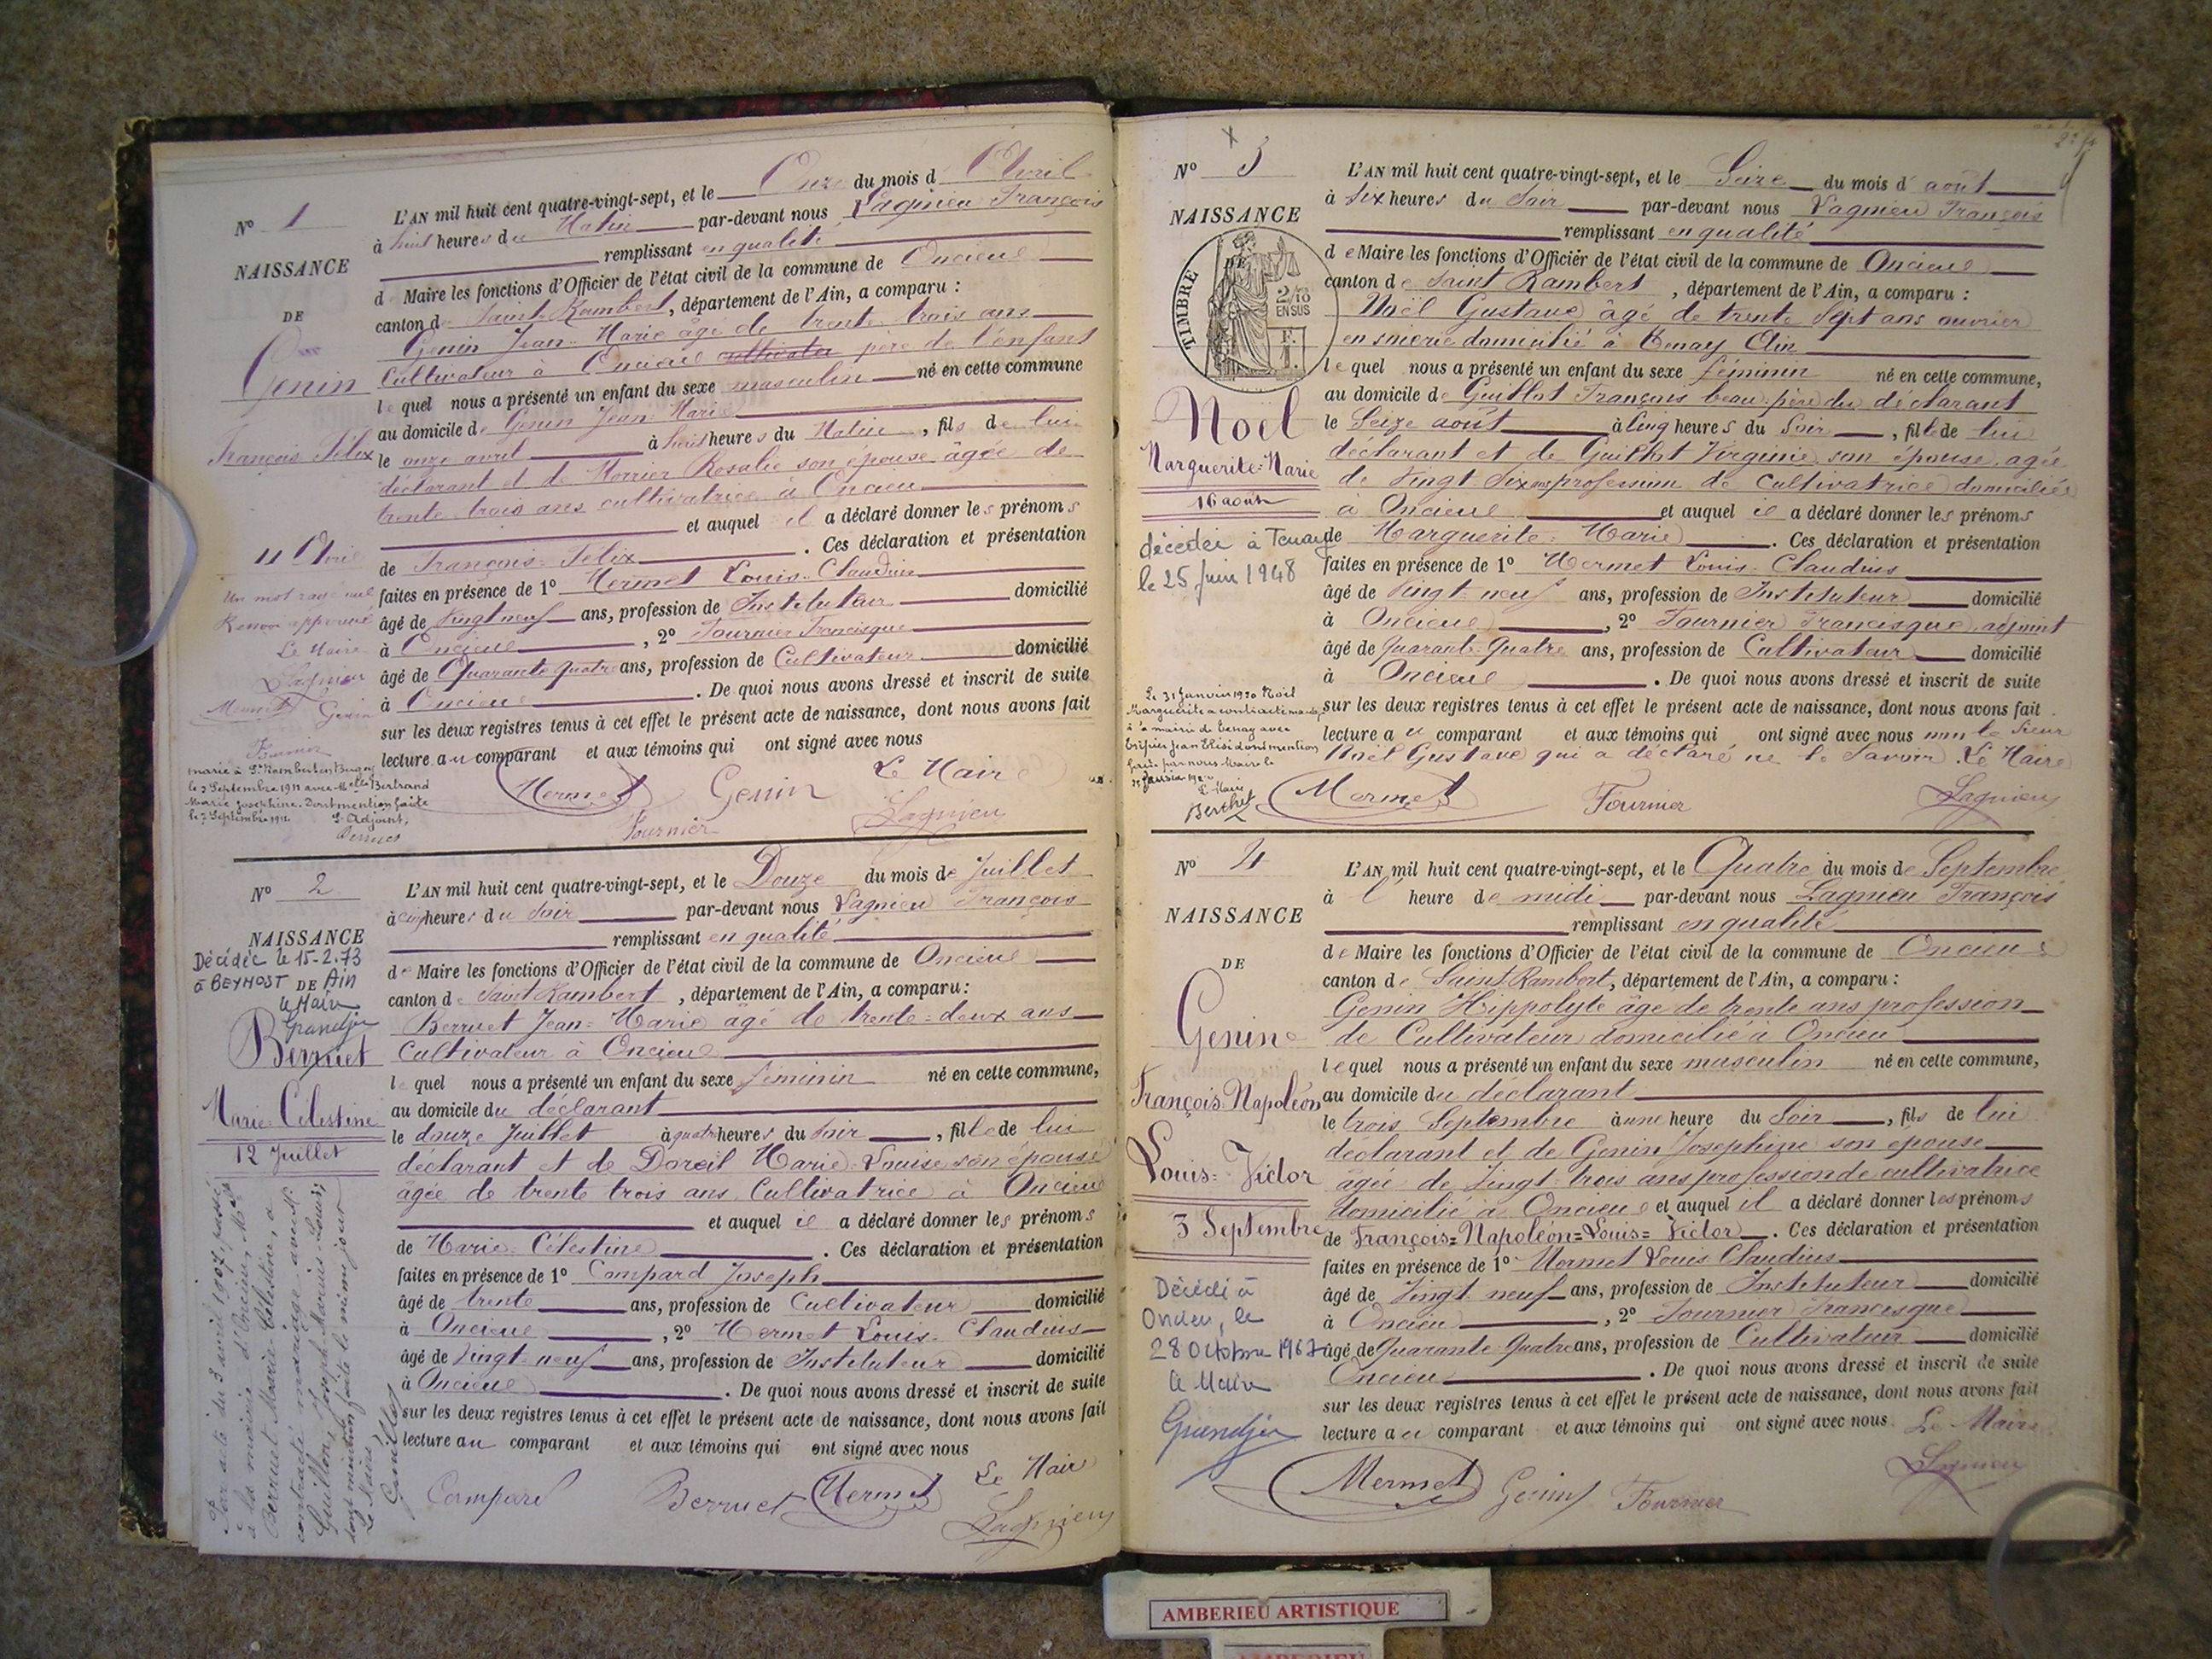 N° 1
NAISSANCE
DE
Genin
François Félix
11 Avril
Un mot rayé nul
Renvoi approuvé
Le Maire
Lagnieu
Mermet Genin
Fournier
marié à St Rambert en Bugey
le 2 Septembre 1911 avec Melle Bertrand
Marie Josephine. Dont mention faite
le 2 Septembre 1911. L'Adjoint,
L'AN mil huit cent quatre-vingt-sept, et le Onze du mois d'Avril
à huit heures du Matin par-devant nous Lagnieu François
remplissant en qualité
de Maire les fonctions d'Officier de l'état civil de la commune de Oncieu
canton de Saint Rambert, département de l'Ain, a comparu :
Genin Jean-Marie âgé de trente trois ans
Cultivateur à Oncieu cultivateur père de l'enfant
lequel nous a présenté un enfant du sexe masculin né en cette commune
au domicile de Genin Jean-Marie
le onze avril à trois heures du Matin, fils de lui
déclarant et de Rosalie son épouse âgée de
trente trois ans cultivatrice à Oncieu
et auquel il a déclaré donner les prénoms
de François-Félix. Ces déclaration et présentation
faites en présence de 1° Mermet Louis-Claudius
âgé de Vingt neuf ans, profession de Instituteur domicilié
à Oncieu, 2° Fournier Francisque
âgé de Quarante quatre ans, profession de Cultivateur domicilié
à Oncieu. De quoi nous avons dressé et inscrit de suite
sur les deux registres tenus à cet effet le présent acte de naissance, dont nous avons fait
lecture au comparant et aux témoins qui ont signé avec nous
Le Maire
Mermet Genin
Fournier Lagnieu
N° 2
NAISSANCE
Décédée le 15-2-73
à BEYNOST DE Ain
Le Maire
Grandjin
Berruet
Marie Célestine
12 Juillet
Par acte du 3 avril 1907, passé
à la mairie d'Oncieu, Melle
Berruet Marie-Célestine, a
contracté mariage avec Mr
Guillon, Joseph Marius-Louis,
dont mention faite le même jour
Le Maire,
L'AN mil huit cent quatre-vingt-sept, et le Douze du mois de Juillet
à cinq heures du Soir par-devant nous Lagnieu François
remplissant en qualité
de Maire les fonctions d'Officier de l'état civil de la commune de Oncieu
canton de Saint Rambert, département de l'Ain, a comparu :
Berruet Jean-Marie agé de trente-deux ans
Cultivateur à Oncieu
lequel nous a présenté un enfant du sexe féminin né en cette commune,
au domicile du déclarant
le douze Juillet à quatre heures du Soir, fille de lui
déclarant et de Doreil Marie-Louise son épouse
âgée de trente trois ans Cultivatrice à Oncieu
et auquel il a déclaré donner les prénoms
de Marie-Célestine. Ces déclaration et présentation
faites en présence de 1° Compard Joseph
âgé de trente ans, profession de Cultivateur domicilié
à Oncieu, 2° Mermet Louis-Claudius
âgé de Vingt-neuf ans, profession de Instituteur domicilié
à Oncieu. De quoi nous avons dressé et inscrit de suite
sur les deux registres tenus à cet effet le présent acte de naissance, dont nous avons fait
lecture au comparant et aux témoins qui ont signé avec nous
Le Maire
Compard Berruet Mermet
Lagnieu
N° 3
NAISSANCE
DE
TIMBRE
2/10
EN SUS
Noël
Marguerite-Marie
16 août
décédée à Tenay
le 25 juin 1948
Le 31 Janvier 1920 Noël
Marguerite a contracté mariage
à la mairie de Tenay avec
dont mention
faite par nous Maire le
Le Maire
Berthet
L'AN mil huit cent quatre-vingt-sept, et le Seize du mois d'août
à Six heures du Soir par-devant nous Lagnieu François
remplissant en qualité
de Maire les fonctions d'Officier de l'état civil de la commune de Oncieu
canton de Saint Rambert, département de l'Ain, a comparu :
Noël Gustave âgé de trente Sept ans ouvrier
en soierie domicilié à Tenay Ain
lequel nous a présenté un enfant du sexe féminin né en cette commune,
au domicile de Guillot François beau-père du déclarant
le Seize août à Cinq heures du Soir, fille de lui
déclarant et de Guillot Virginie son épouse agée
de Vingt Six ans profession de Cultivatrice domiciliée
à Oncieu et auquel il a déclaré donner les prénoms
de Marguerite-Marie. Ces déclaration et présentation
faites en présence de 1° Mermet Louis-Claudius
âgé de Vingt-neuf ans, profession de Instituteur domicilié
à Oncieu, 2° Fournier Francisque adjoint
âgé de Quarante-Quatre ans, profession de Cultivateur domicilié
à Oncieu. De quoi nous avons dressé et inscrit de suite
sur les deux registres tenus à cet effet le présent acte de naissance, dont nous avons fait
lecture au comparant et aux témoins qui ont signé avec nous non le Sieur
Noël Gustave qui a déclaré ne le Savoir. Le Maire
Mermet Fournier Lagnieu
N° 4
NAISSANCE
DE
Genin
François-Napoléon
Louis-Victor
3 Septembre
Décédé à
Oncieu, le
28 Octobre 1967
Le Maire
Grandjin
L'AN mil huit cent quatre-vingt-sept, et le Quatre du mois de Septembre
à l'heure de midi par-devant nous Lagnieu François
remplissant en qualité
de Maire les fonctions d'Officier de l'état civil de la commune de Oncieu
canton de Saint Rambert, département de l'Ain, a comparu :
Genin Hippolyte âgé de trente ans profession
de Cultivateur domicilié à Oncieu
lequel nous a présenté un enfant du sexe masculin né en cette commune,
au domicile du déclarant
le trois Septembre à une heure du Soir, fils de lui
déclarant et de Genin Josephine son épouse
âgée de Vingt-trois ans profession de cultivatrice
domicilié à Oncieu et auquel il a déclaré donner les prénoms
de François=Napoléon=Louis=Victor. Ces déclaration et présentation
faites en présence de 1° Mermet Louis Claudius
âgé de Vingt neuf ans, profession de Instituteur domicilié
à Oncieu, 2° Fournier Francisque
âgé de Quarante-Quatre ans, profession de Cultivateur domicilié
Oncieu. De quoi nous avons dressé et inscrit de suite
sur les deux registres tenus à cet effet le présent acte de naissance, dont nous avons fait
lecture au comparant et aux témoins qui ont signé avec nous. Le Maire
Lagnieu
Mermet Genin Fournier
AMBERIEU ARTISTIQUE
AMBERIEU